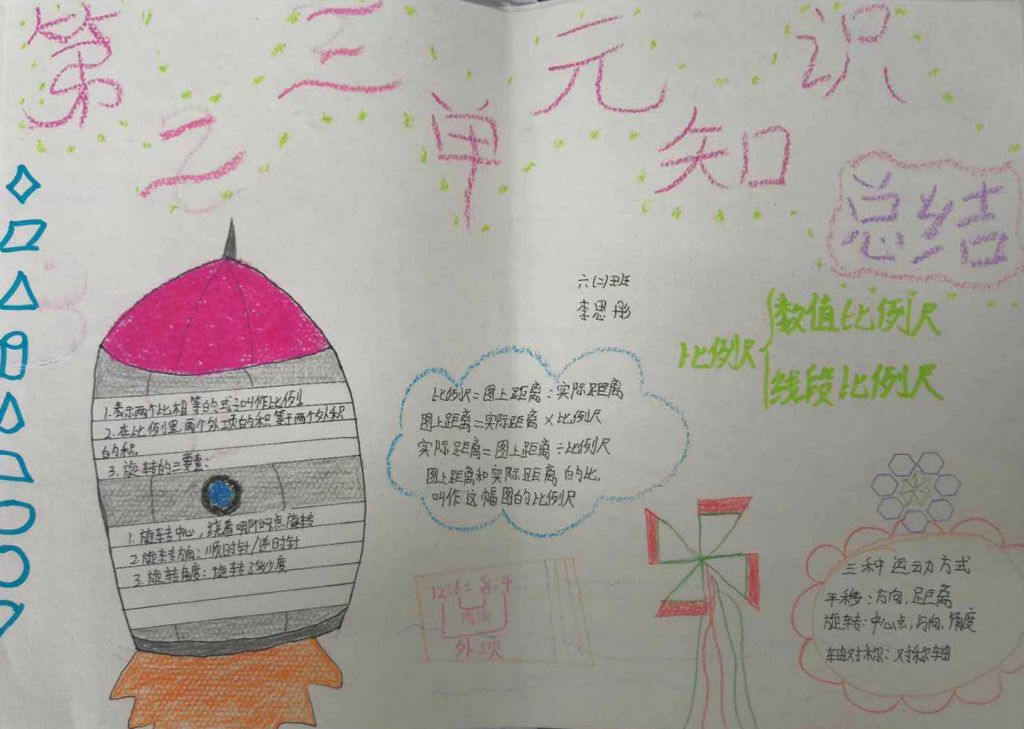 第二三单元知识
总结
六(二)班
李思彤
比例尺
数值比例尺
线段比例尺
1.表示两个比相等的式子叫作比例
2.在比例里,两个外项的积等于两个外积
的积.
3.旋转的三要素:
1.旋转中心,绕着哪个点旋转
2.旋转方向:顺时针/逆时针
3.旋转角度:旋转了多少度
比例尺=图上距离:实际距离
图上距离=实际距离×比例尺
实际距离=图上距离÷比例尺
图上距离和实际距离的比,
叫作这幅图的比例尺
12:6=8:4
内项
外项
三种运动方式
平移:方向,距离
旋转:中心点,方向、角度
轴对称:对称轴